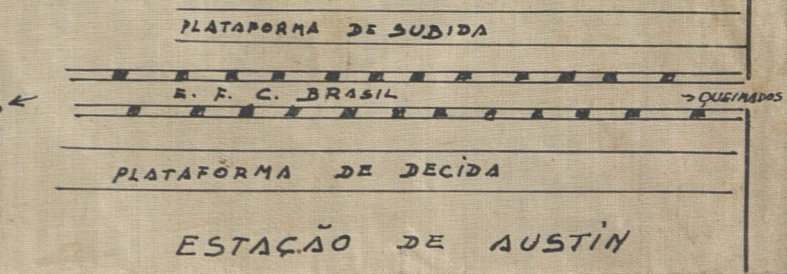 PLATAFORMA DE SUBIDA
E. F. C. BRASIL
→ QUEIMADOS
PLATAFORMA DE DECIDA
ESTAÇÃO DE AUSTIN